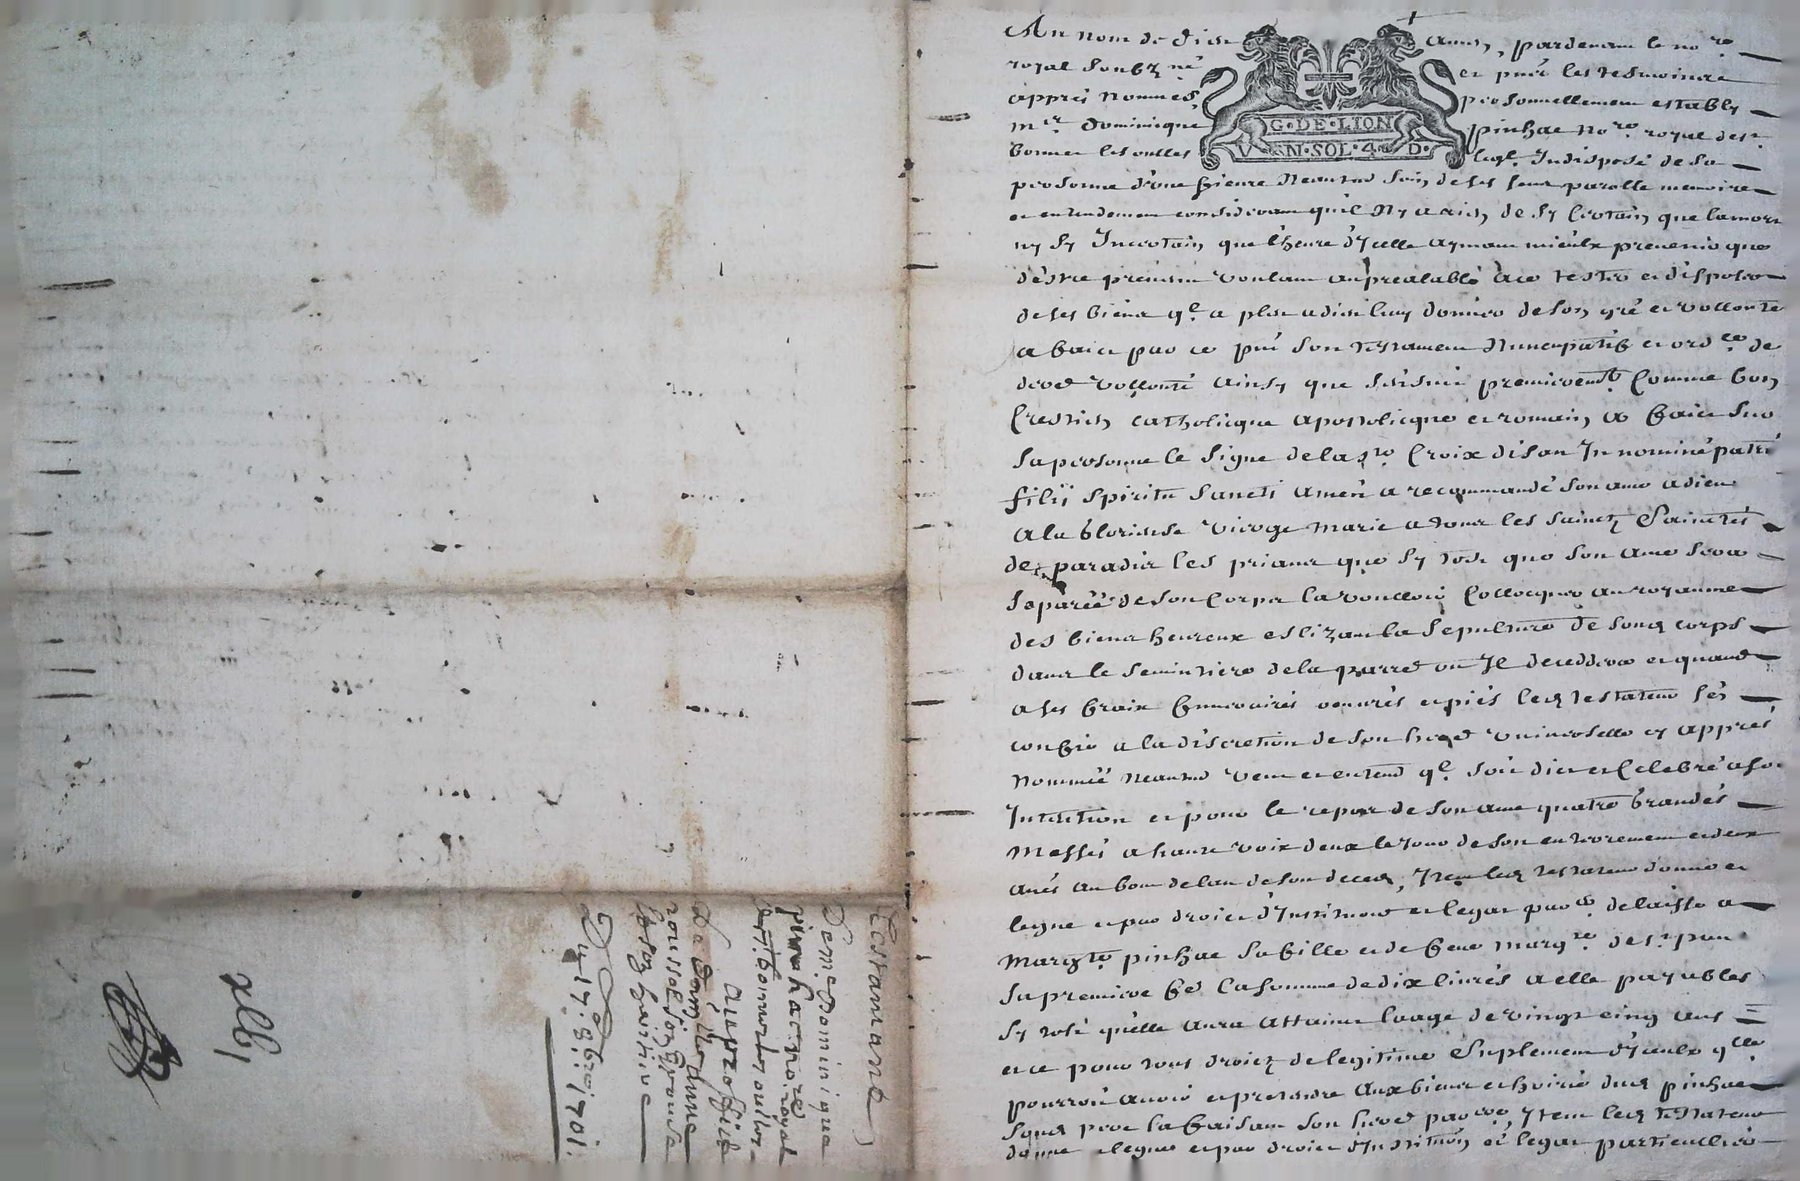 Au nom de dieu amen, pardevant le no.re
royal soubz.né et pnts les tesmoings
appres nommes personnellement estably
m.er dominique pinhac no.re royal de st
bonnet les oulles G·DE·LION leql. Indisposé de sa
V N·SOL·4 D·
personne d'une fievre neantmo sain de ses sens parolle memoire
et entendement considerant quil ny a rien de sy certain que la mort
ny sy Incertain que l'heure d'Icelle aymant mieulx prevenir que
d'estre prevenu voulant au prealable a ce tester et disposer
de ses biens q.l a pleu a dieu luy donner de son gré et vollonte
a faict par ce pnt son testament nuncupatif et ord.ce de
der.e vollonté ainsy que s'ensuit premierem.t Comme bon
Crestien catholicque apostolicque et romain a faict sur
sa personne le signe de la s.te Croix disan In nomine patri
filii spiritu sancti amen a recommandé son ame a dieu
a la glorieuse vierge marie a tous les saincts Sainctes
de paradis les priant que sy tost que son ame sera
separée de son Corps la voulloir Collocquer au royaume
des bienz heureux eslizant la sepulture de sond corps
dans le semintiere de la parro.e ou Il deceddera et quand
a ses fraix funeraires oeuvres et pies led testateur les
confie a la discretion de son here.e universelle cy appres
nommée neantmo veut et entend q.l soit dict et Celebré a son
Intention et pour le repos de son ame quatre grandes
messes a haute voix deux le jour de son enterrement et deux
aues au bout de lan de son deced, Item led testateur donne et
legue et par droict d'Institu.on et legat par.er delaisse a
marg.te pinhac sa fille et de feue marg.te de st pau
sa premiere fe.e la somme de dix livres a elle payables
sy tost qu'elle aura attaint laage de vingt cinq ans
et ce pour tous droictz de legitime suplement d'Icelle q.lle
pourroit avoir et pretendre aux biens et hoirie dud pinhac
sond pere la faisant son here.e par.ere, Item led testateur
donne et legue et par droict d'Institu.on et legat particullier
Testamant
de m.e dominique
pinhac no.re royal
de st. bonnet les oulles
au proffit
de dem.lle anne
roussel son espouse
her.e
Du 17 8bre 1701.